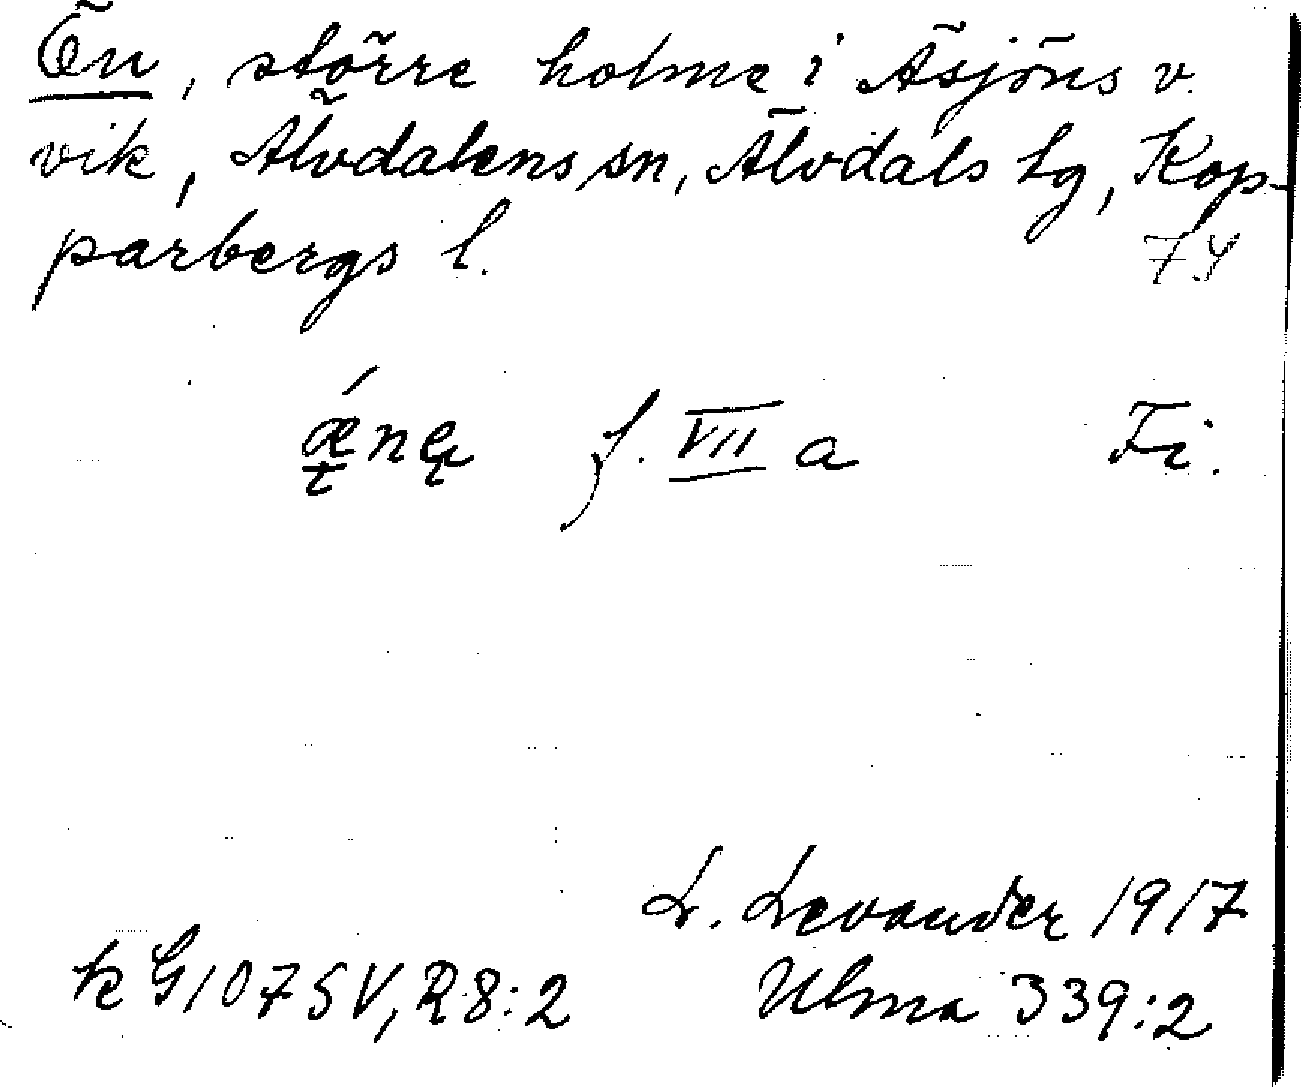 Ön, större holme i Äsjöns v.
vik, Älvdalens sn, Älvdals hg, Kop-
parbergs l. 74
ǽnę f. VII a Fi.
L. Levander 1917
k G 107 SV, R 8:2 Ulma 339:2